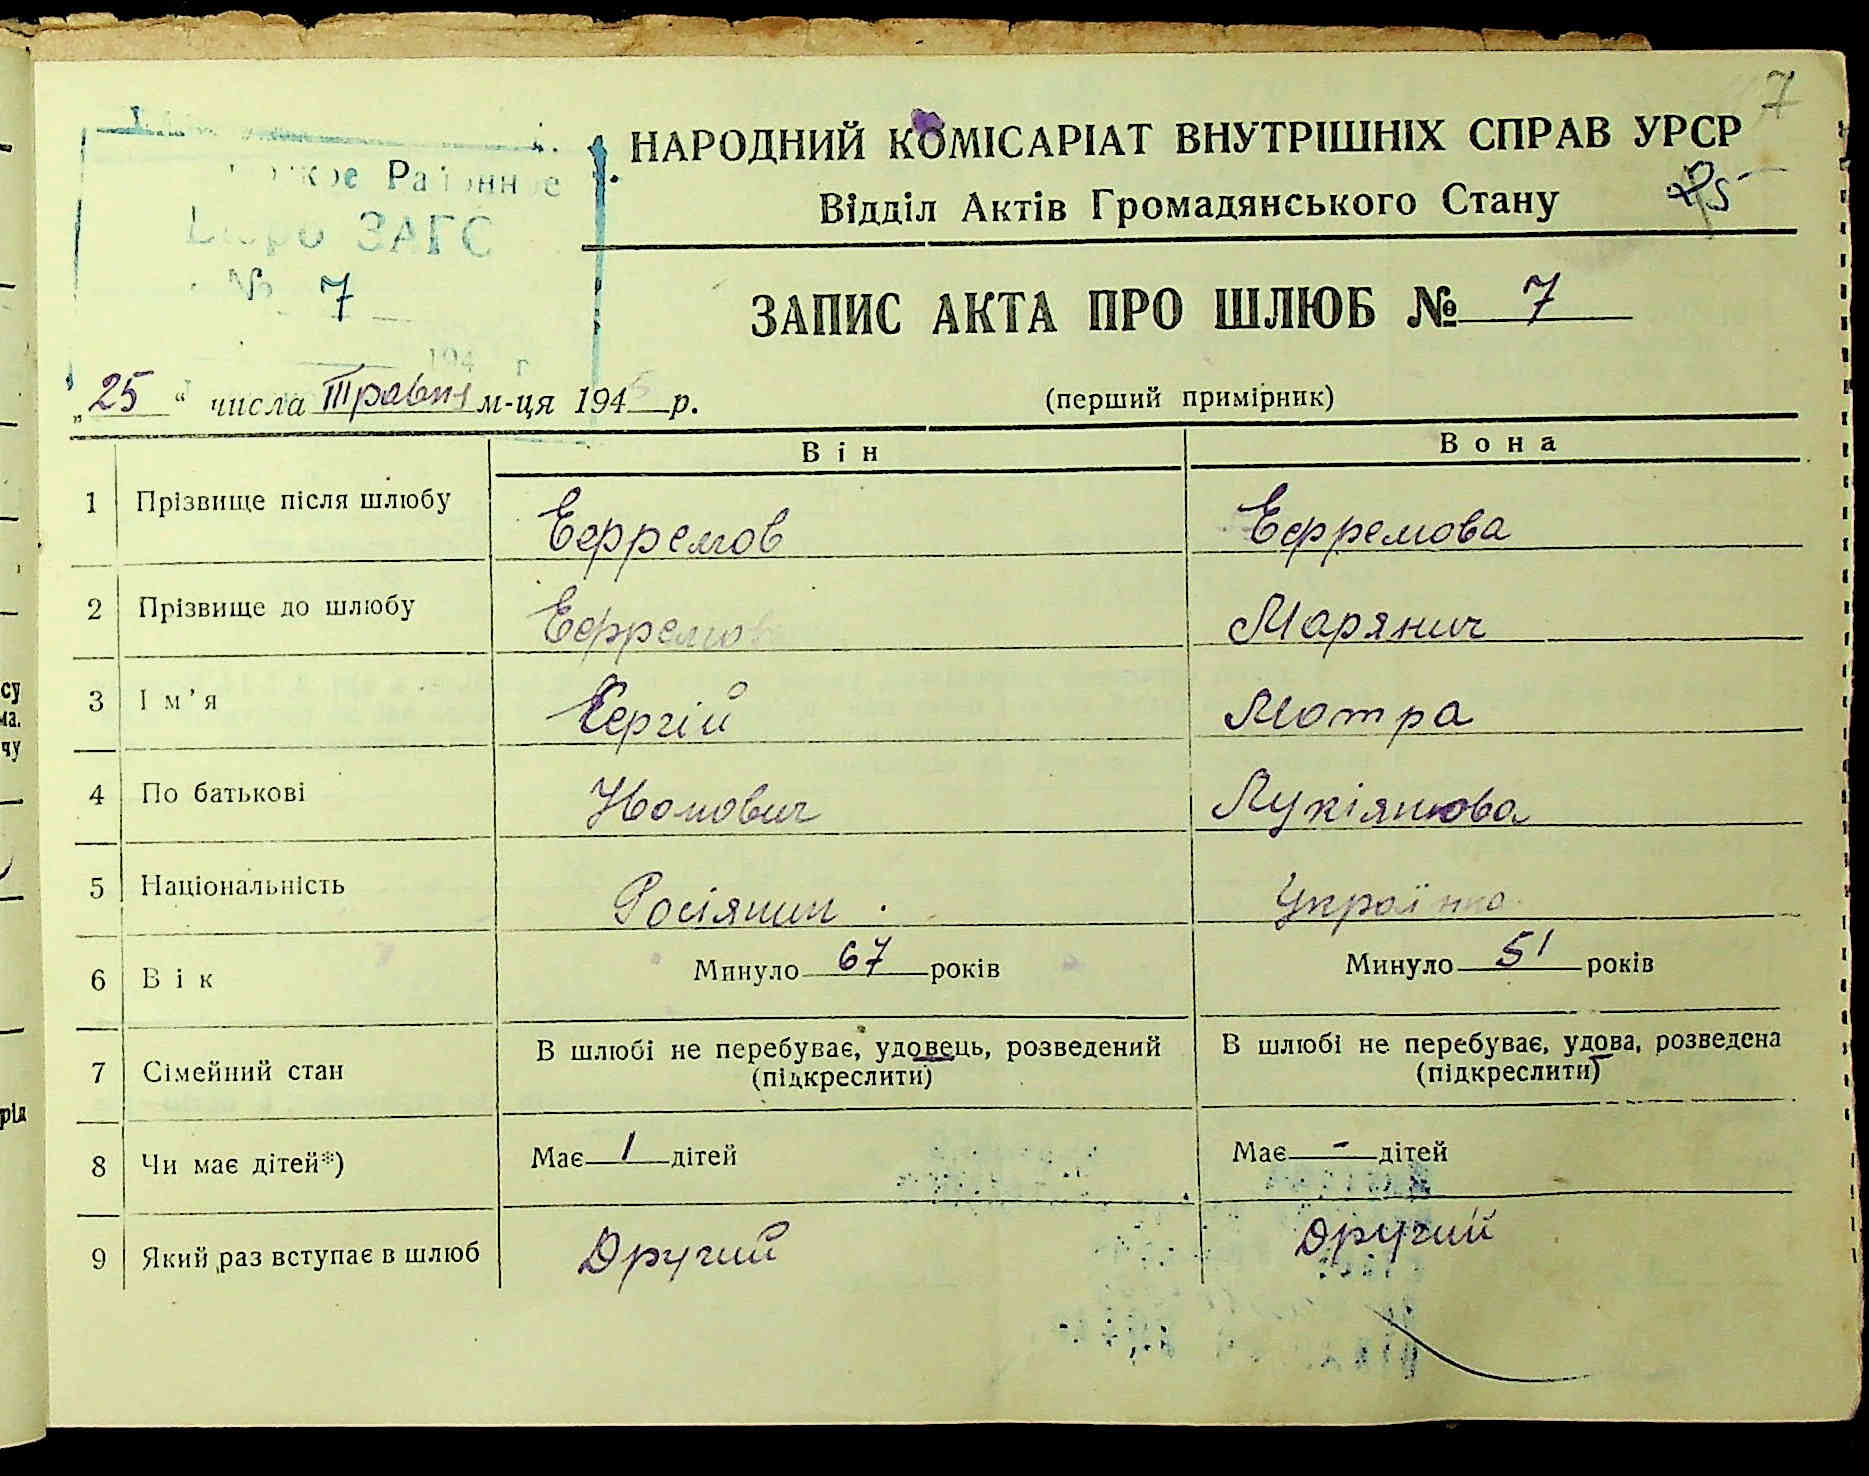 7
НАРОДНИЙ КОМІСАРІАТ ВНУТРІШНІХ СПРАВ УРСР
Відділ Актів Громадянського Стану
25
Районное
Бюро ЗАГС
№ 7
194 г
ЗАПИС АКТА ПРО ШЛЮБ № 7
„25“ числа Травня м-ця 1945 р.
(перший примірник)
Він Вона
1 Прізвище після шлюбу Ефремов Ефремова
2 Прізвище до шлюбу Ефремов Марянич
3 Ім’я Сергій Мотра
4 По батькові Нопович Лукіянова
5 Національність Росіянин Українка
6 Вік Минуло 67 років Минуло 51 років
7 Сімейний стан В шлюбі не перебуває, удовець, розведений (підкреслити) В шлюбі не перебуває, удова, розведена (підкреслити)
8 Чи має дітей*) Має 1 дітей Має - дітей
9 Який раз вступає в шлюб Другий Другий
су
ма.
чу
рід